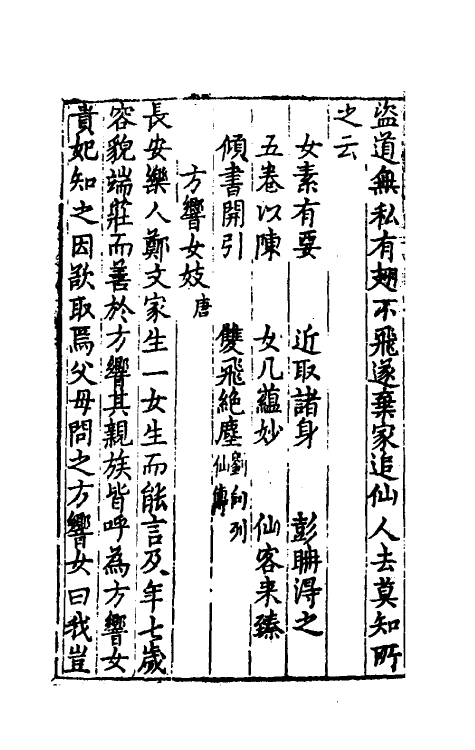 盜道無私有翅不飛遂棄家追仙人去莫知所
之云
女素有要　近取諸身　彭聃得之
五卷以陳　女几蘊妙　仙客来臻
傾書開引　雙飛絶塵劉向列仙傳
方響女妓唐
長安樂人鄭文家生一女生而能言及年七歲
容貌端莊而善於方響其親族皆呼為方響女
貴妃知之因欲取焉父母問之方響女曰我豈